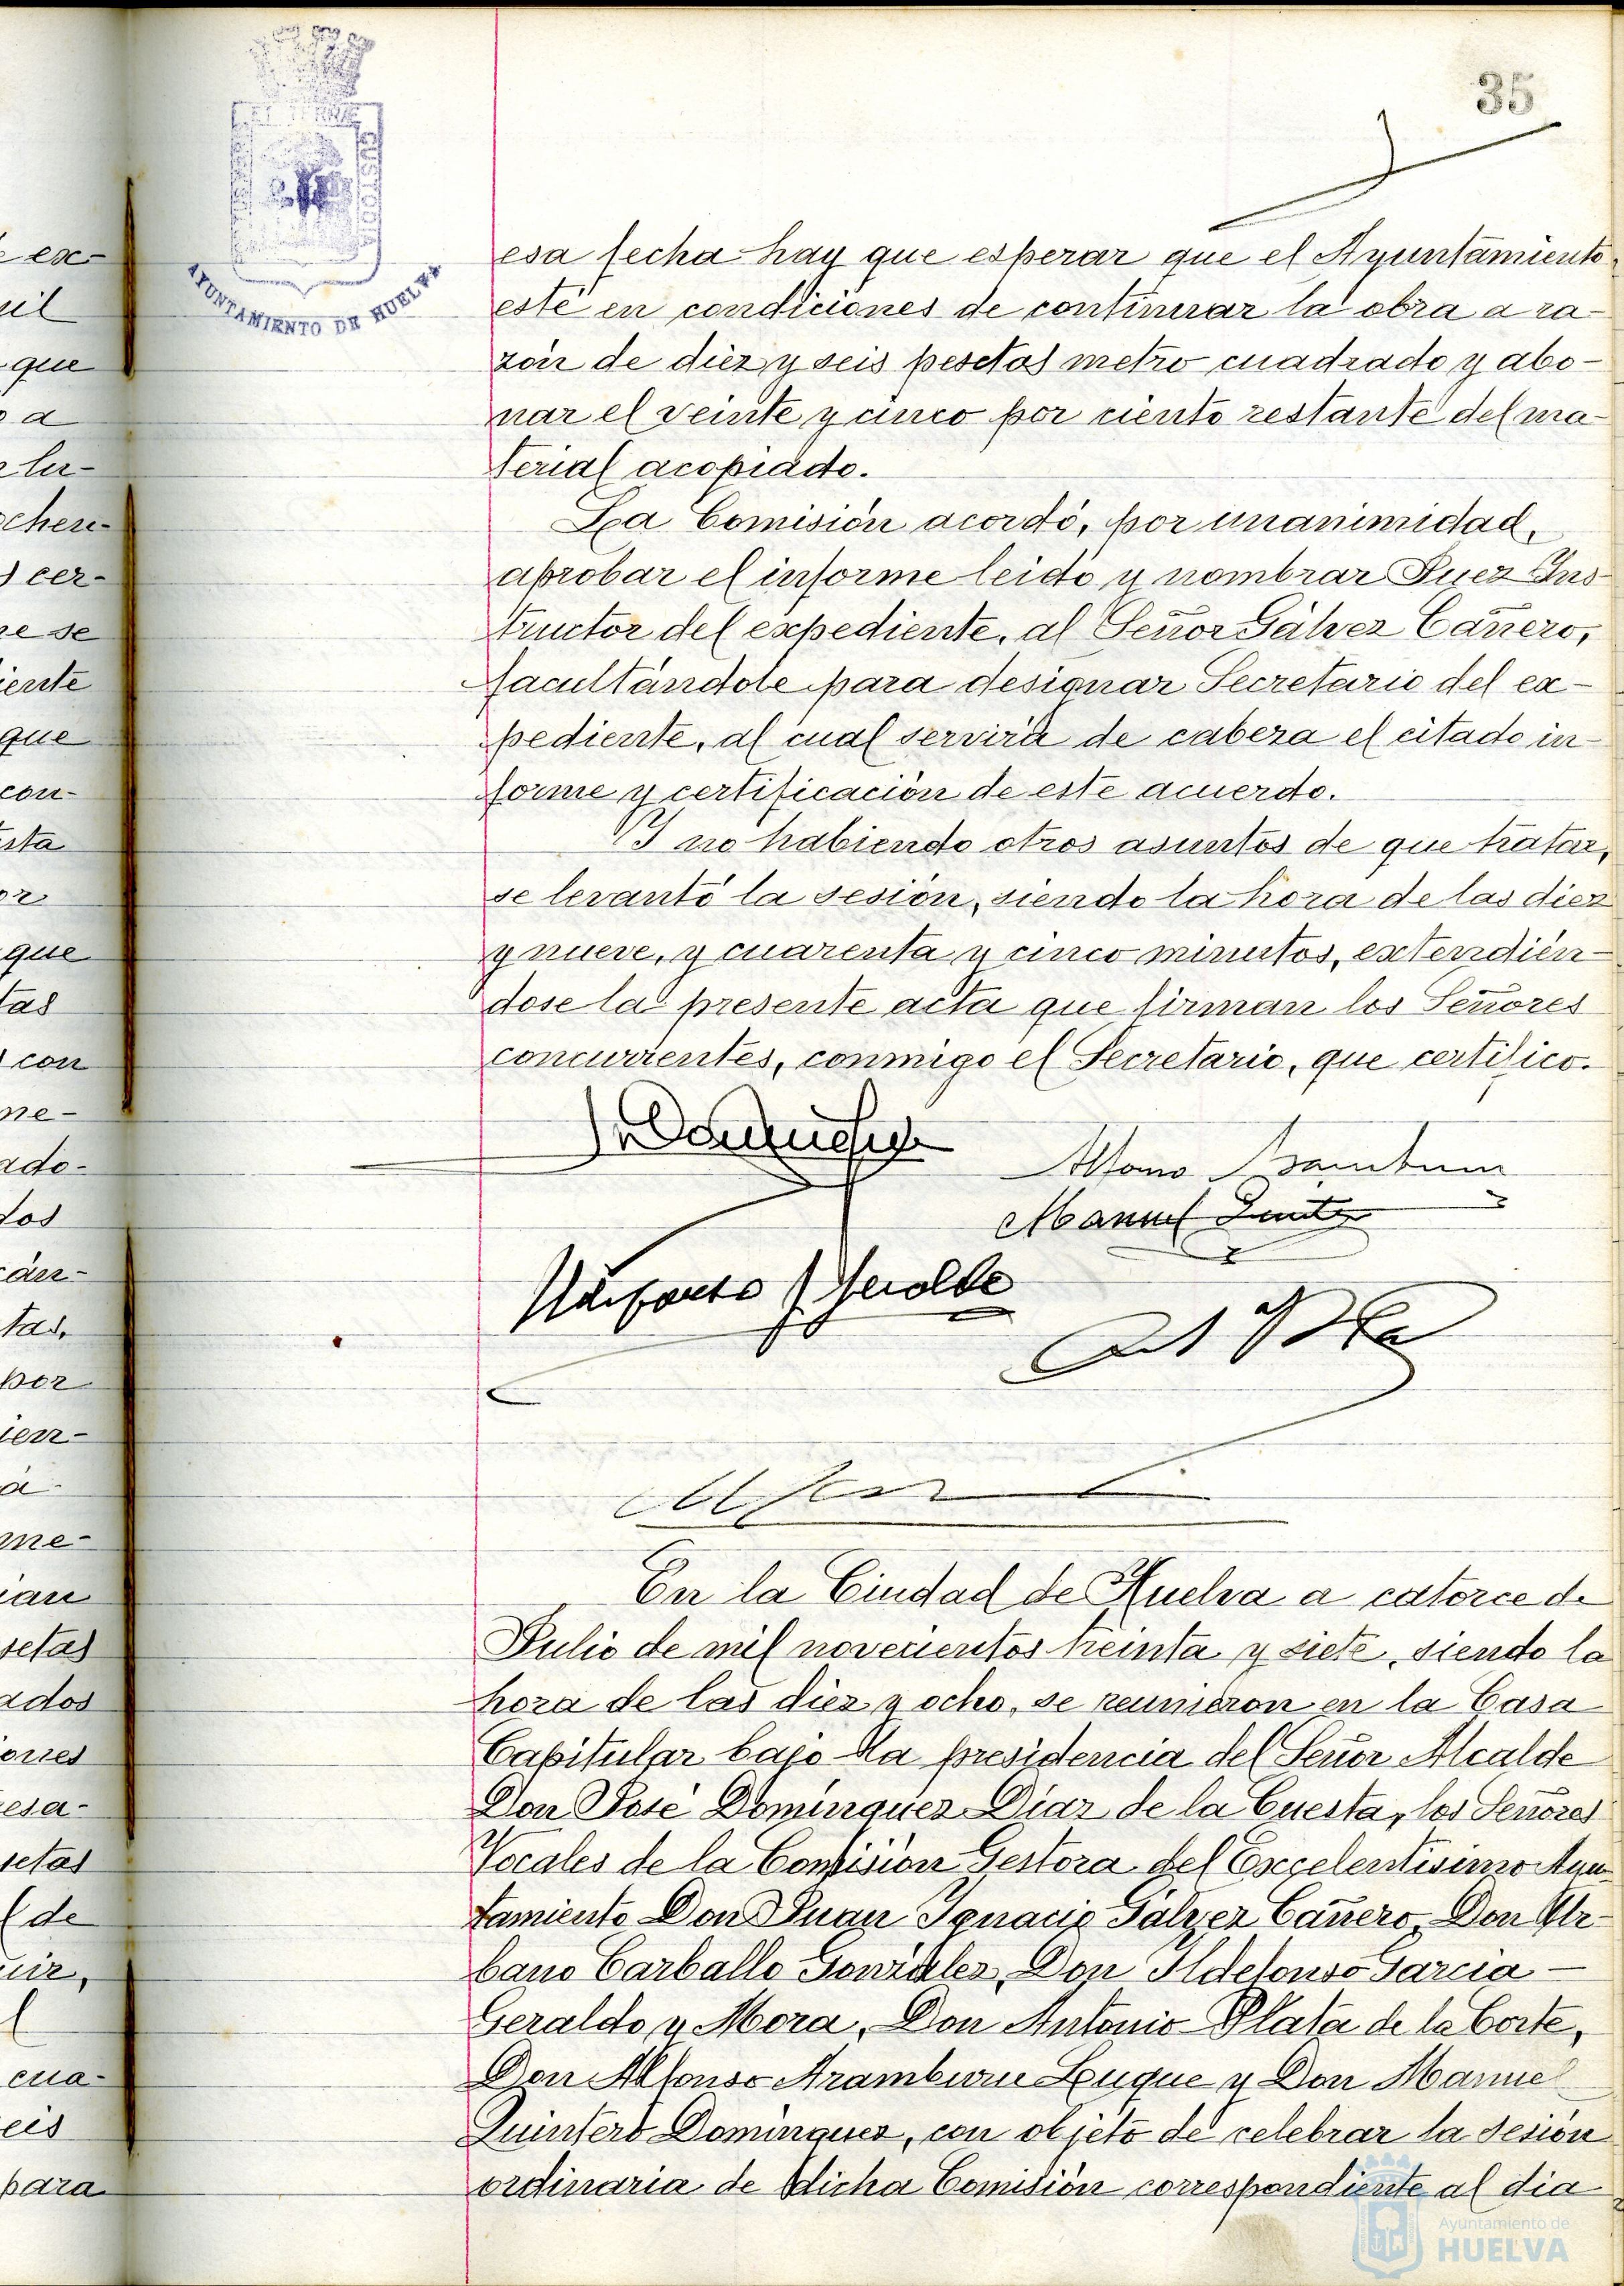 35
AYUNTAMIENTO DE HUELVA
CUSTODIA
esa fecha hay que esperar que el Ayuntamiento
esté en condiciones de continuar la obra a ra-
zón de diez y seis pesetas metro cuadrado y abo-
nar el veinte y cinco por ciento restante del ma-
terial acopiado.
La Comisión acordó, por unanimidad,
aprobar el informe leido y nombrar Juez Ins
tructor del expediente, al Señor Gálvez Cañero,
facultándole para designar Secretario del ex-
pediente, al cual servirá de cabeza el citado in-
forme y certificación de este acuerdo.
Y no habiendo otros asuntos de que tratar,
se levantó la sesión, siendo la hora de las diez
y nueve, y cuarenta y cinco minutos, extendién-
dose la presente acta que firman los Señores
concurrentes, conmigo el Secretario, que certifico.
Alfonso Aramburu
Manuel Quintero
En la Ciudad de Huelva a catorce de
Julio de mil novecientos treinta y siete, siendo la
hora de las diez y ocho, se reunieron en la Casa
Capitular bajo la presidencia del Señor Alcalde
Don José Dominguez Diaz de la Cuesta, los Señores
Vocales de la Comisión Gestora del Excelentisimo Ayun
tamiento Don Juan Ignacio Gálvez Cañero, Don Ur-
bano Carballo González, Don Ildefonso Garcia-
Geraldo y Mora, Don Antonio Plata de la Corte,
Don Alfonso Aramburu Luque y Don Manuel
Quintero Dominguez, con objeto de celebrar la sesión
ordinaria de dicha Comisión correspondiente al dia
Ayuntamiento de
HUELVA
ex-
que
a
cer-
se
que
con-
que
con
me-
por
de
cua-
para